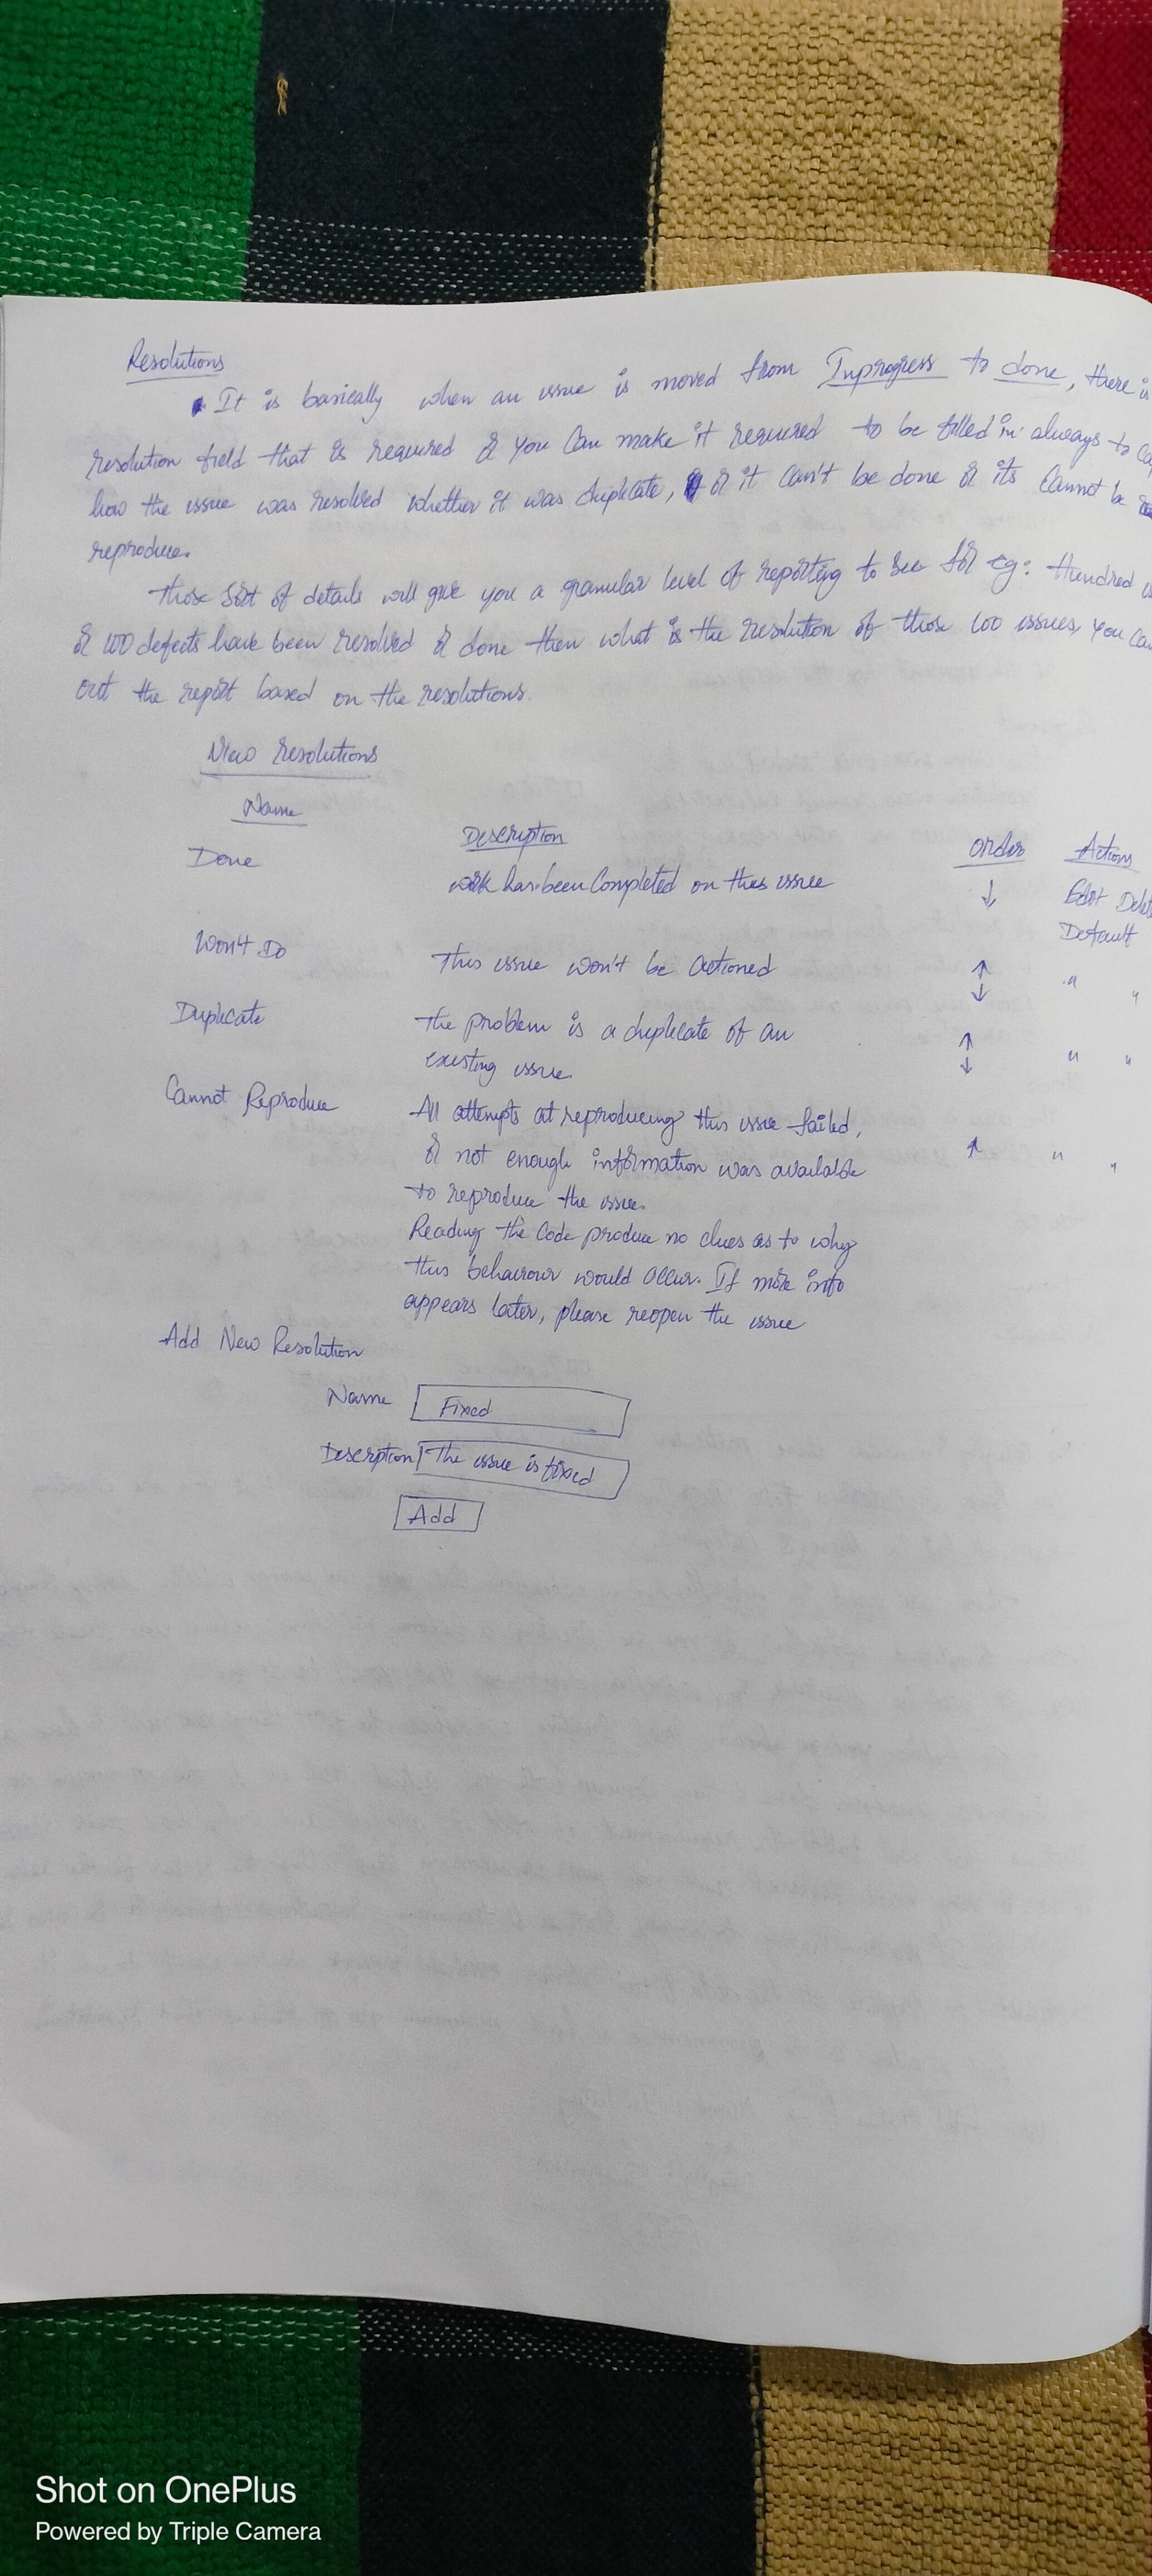 Resolutions
It is basically when an issue is moved from Inprogress to done, there is
resolution field that is required & you can make it required to be filled in always to
how the issue was resolved whether it was duplicate, or it can't be done or its cannot be
reproduce.
Those sort of details will give you a granular level of reporting to see for eg: Hundred
or 100 defects have been resolved or done then what is the resolution of those 100 issues, you
out the report based on the resolutions.
View resolutions
Name Description Order Actions
Done work has been completed on this issue ↓ Edit
Default
Won't Do This issue won't be actioned ↑ ↓ " "
Duplicate The problem is a duplicate of an ↑ ↓ " "
existing issue.
Cannot Reproduce All attempts at reproducing this issue failed,
or not enough information was available ↑ " "
to reproduce the issue.
Reading the code produce no clues as to why
this behaviour would occur. If more info
appears later, please reopen the issue
Add New Resolution
Name Fixed
Description The issue is fixed
Add
Shot on OnePlus
Powered by Triple Camera